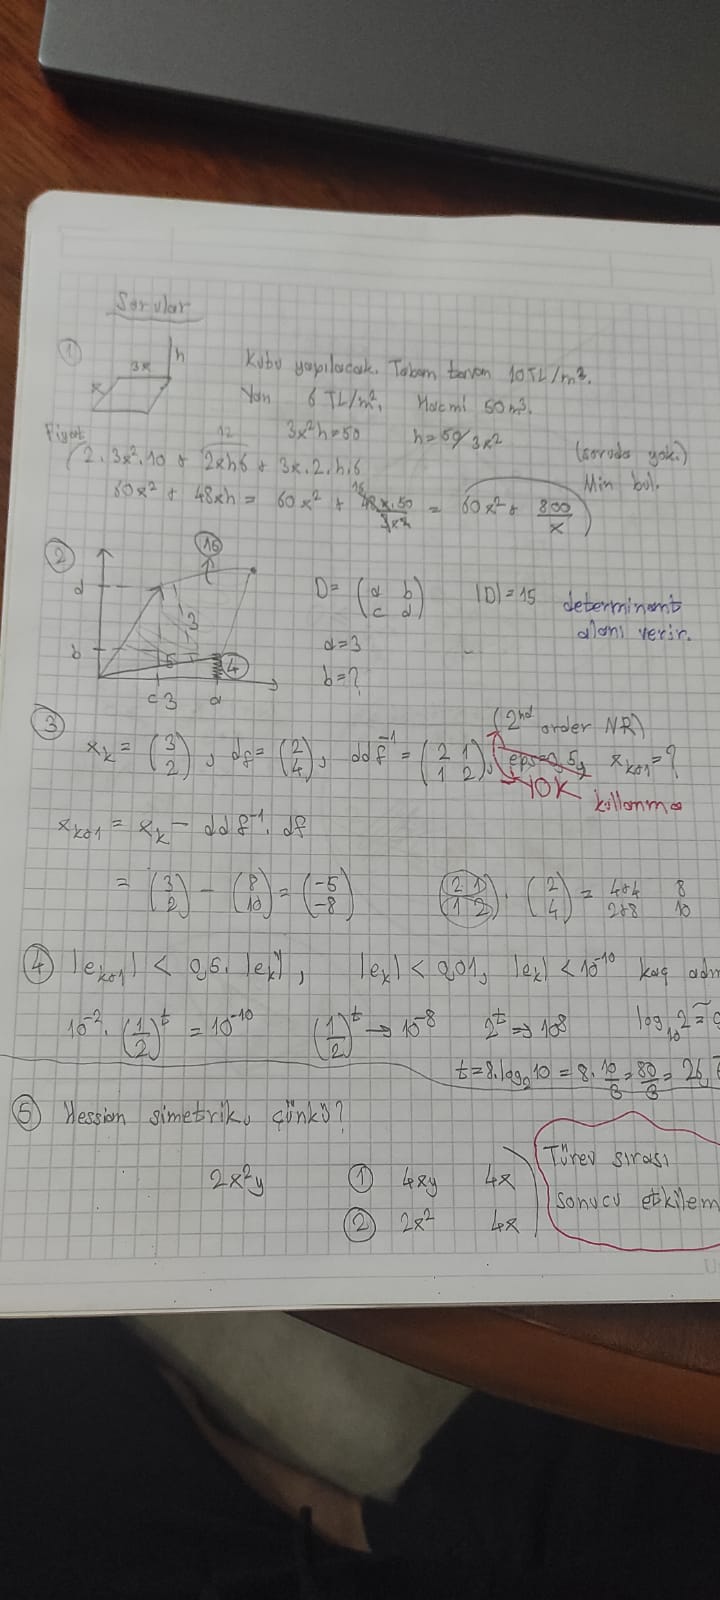 Sorular
① 3x h x Kutu yapılacak. Taban tavan 10TL/m².
Yan 6 TL/m², Hacmi 50m³.
3x²h=50 h=50/3x² (soruda yok.)
Fiyat 12 Min bul.
(2.3x².10 + 2xh6 + 3x.2.h.6
60x² + 48xh = 60x² + 16 48x.50/3x² = 60x² + 800/x)
② 15 d b c 3 a 3 5 4
D= (a b
c d) |D|=15 determinant
alanı verir.
a=3
b=?
③ (2nd order NR)
xk = (3
2), df= (2
4), ddf⁻¹ = (2 1
1 2), (eps=0,5) xk+1=?
YOK kullanma
xk+1 = xk - ddf⁻¹. df
= (3
2) - (8
10) = (-5
-8) (2 1
1 2) . (2
4) = 4+4 8
2+8 10
④ |ek+1| < 0,5. |ek|, |ek| < 0,01, |ek| < 10⁻¹⁰ kaç
10⁻². (1/2)ᵗ = 10⁻¹⁰ (1/2)ᵗ → 10⁻⁸ 2ᵗ ⇒ 10⁸ log₁₀2 ≅
t=8.log₂10 = 8. 10/3 = 80/3 = 26,
⑤ Hession simetrik, çünkü?
2x²y ① 4xy 4x Türev sırası
② 2x² 4x sonucu etkilem